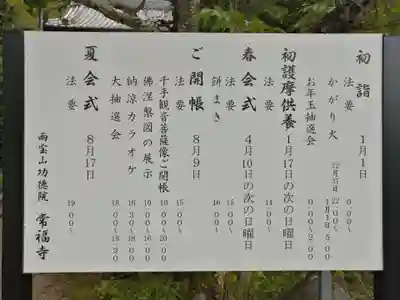 初詣 1月1日
法要 0:00~
かがり火 12月31日 22:00~ 1月1日 5:00
お年玉抽選会 0:00~2:00
初護摩供養 1月17日の次の日曜日
法要 14:00~
春会式 4月10日の次の日曜日
法要 15:00~
餅まき 16:00~
ご開帳 8月9日
法要 15:00~
千手観音菩薩像ご開帳 10:00~20:00
佛涅槃図の展示 10:00~16:00
納涼カラオケ 16:30~18:00
大抽選会 18:00~18:30
夏会式 8月17日
法要 19:00~
雨宝山功徳院 常福寺